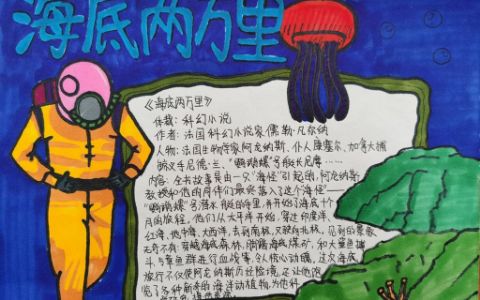 海底两万里
《海底两万里》
体裁：科幻小说
作者：法国科幻小说家儒勒·凡尔纳
人物：法国生物学家阿龙纳斯、仆人康塞尔、加拿大捕
鲸叉手尼德·兰、"鹦鹉螺"号艇长尼摩……
内容：全书故事是由一只"海怪"引起的，阿龙纳斯
教授和他的同伴们最终落入了这个海怪——
"鹦鹉螺"号潜水艇的手里，并开始了海底十个
月的旅程。他们从太平洋开始，穿过印度洋、
红海、地中海、大西洋，去到南极，又驶向北极，见到的景象
无奇不有：穿越海底森林，
海底煤矿，和大章鱼搏
斗与章鱼群进行血战等，令人惊心动魄，这次海底
旅行不仅使阿龙纳斯历经险境，还让他饱
览了多种新奇的海洋动植物，为他科